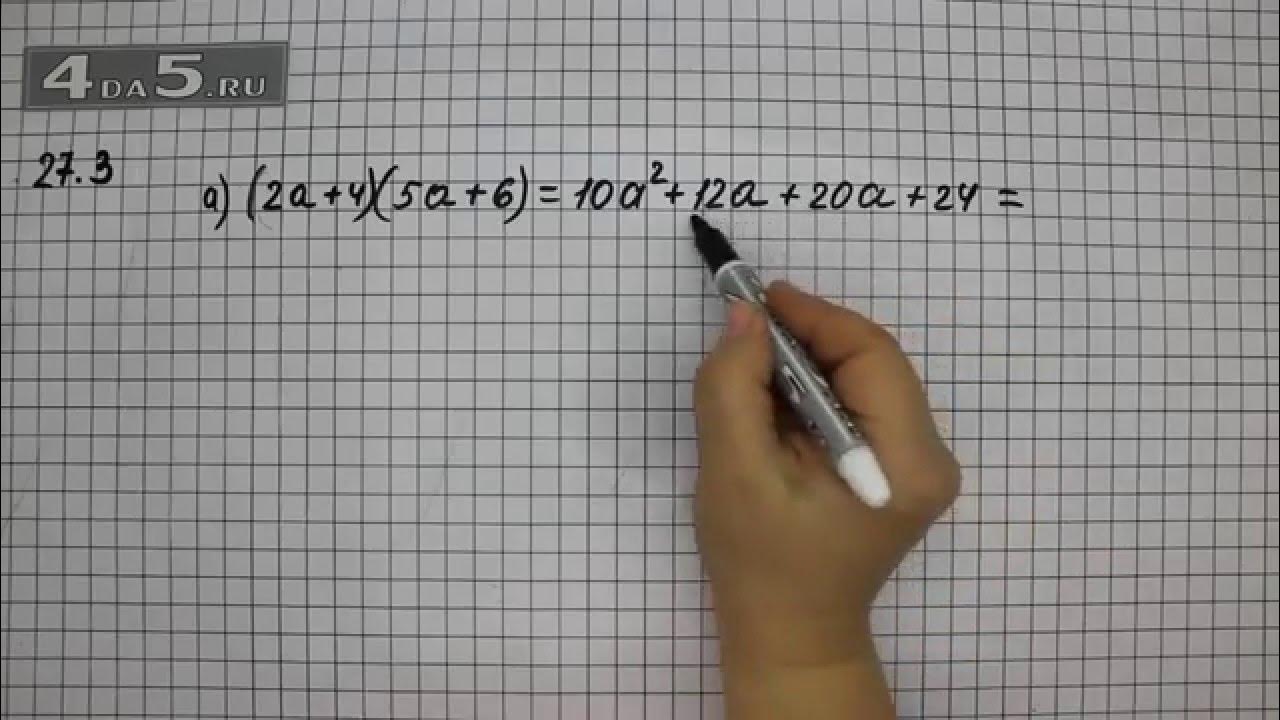 4DA5.RU
27.3
а) (2a+4)(5a+6) = 10a² + 12a + 20a + 24 =